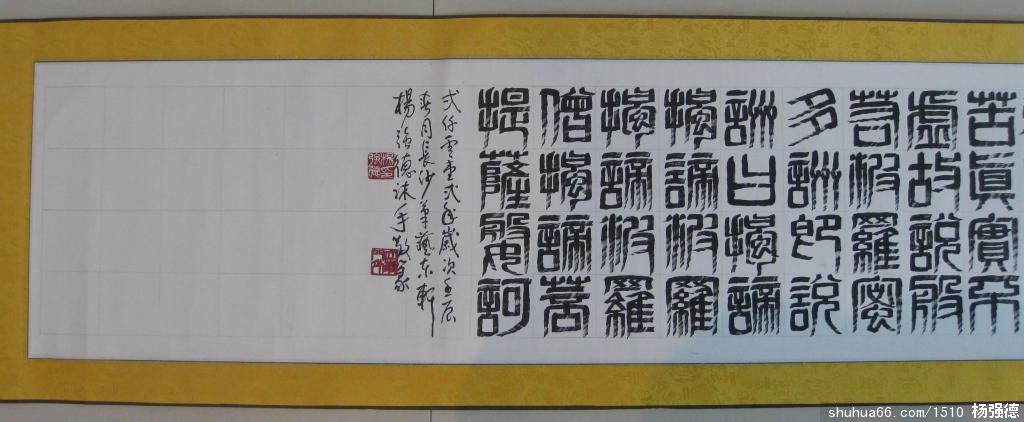 苦真實不
虛故說般
若波羅蜜
多詶即說
詶曰揭諦
揭諦波羅
揭諦波羅
僧揭諦菩
提薩婆訶
弍仟零壹弍年歲次壬辰
春月長沙華藝東軒
楊強德沐手敬篆
shuhua66.com/1510 杨强德